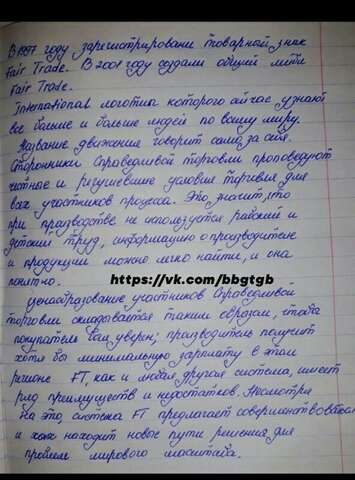 В 1997 году зарегистрировали товарный знак
Fair Trade. В 2001 году создали общий
Fair Trade.
International логотип которого сейчас узнают
все больше и больше людей по всему миру.
Название движения говорит само за себя.
Сторонники Справедливой торговли проповедуют
честные и условия торговли для
всех участников процесса. Это, значит, что
при производстве не используется рабский и
детский труд, информацию о производителе
и продукции можно легко найти, и она
понятно.
https://vk.com/bbgtgb
ценаобразование участников Справедливой
торговли складывается таким образом, чтобы
покупатель был уверен; производитель получит
хотя бы минимальную зарплату в этом
регионе FT, как и любая другая система, имеет
ряд преимуществ и недостатков. Несмотря
на это, система FT предлагает совершенствоваться
и находит новые пути решения для
проблем мирового масштаба.